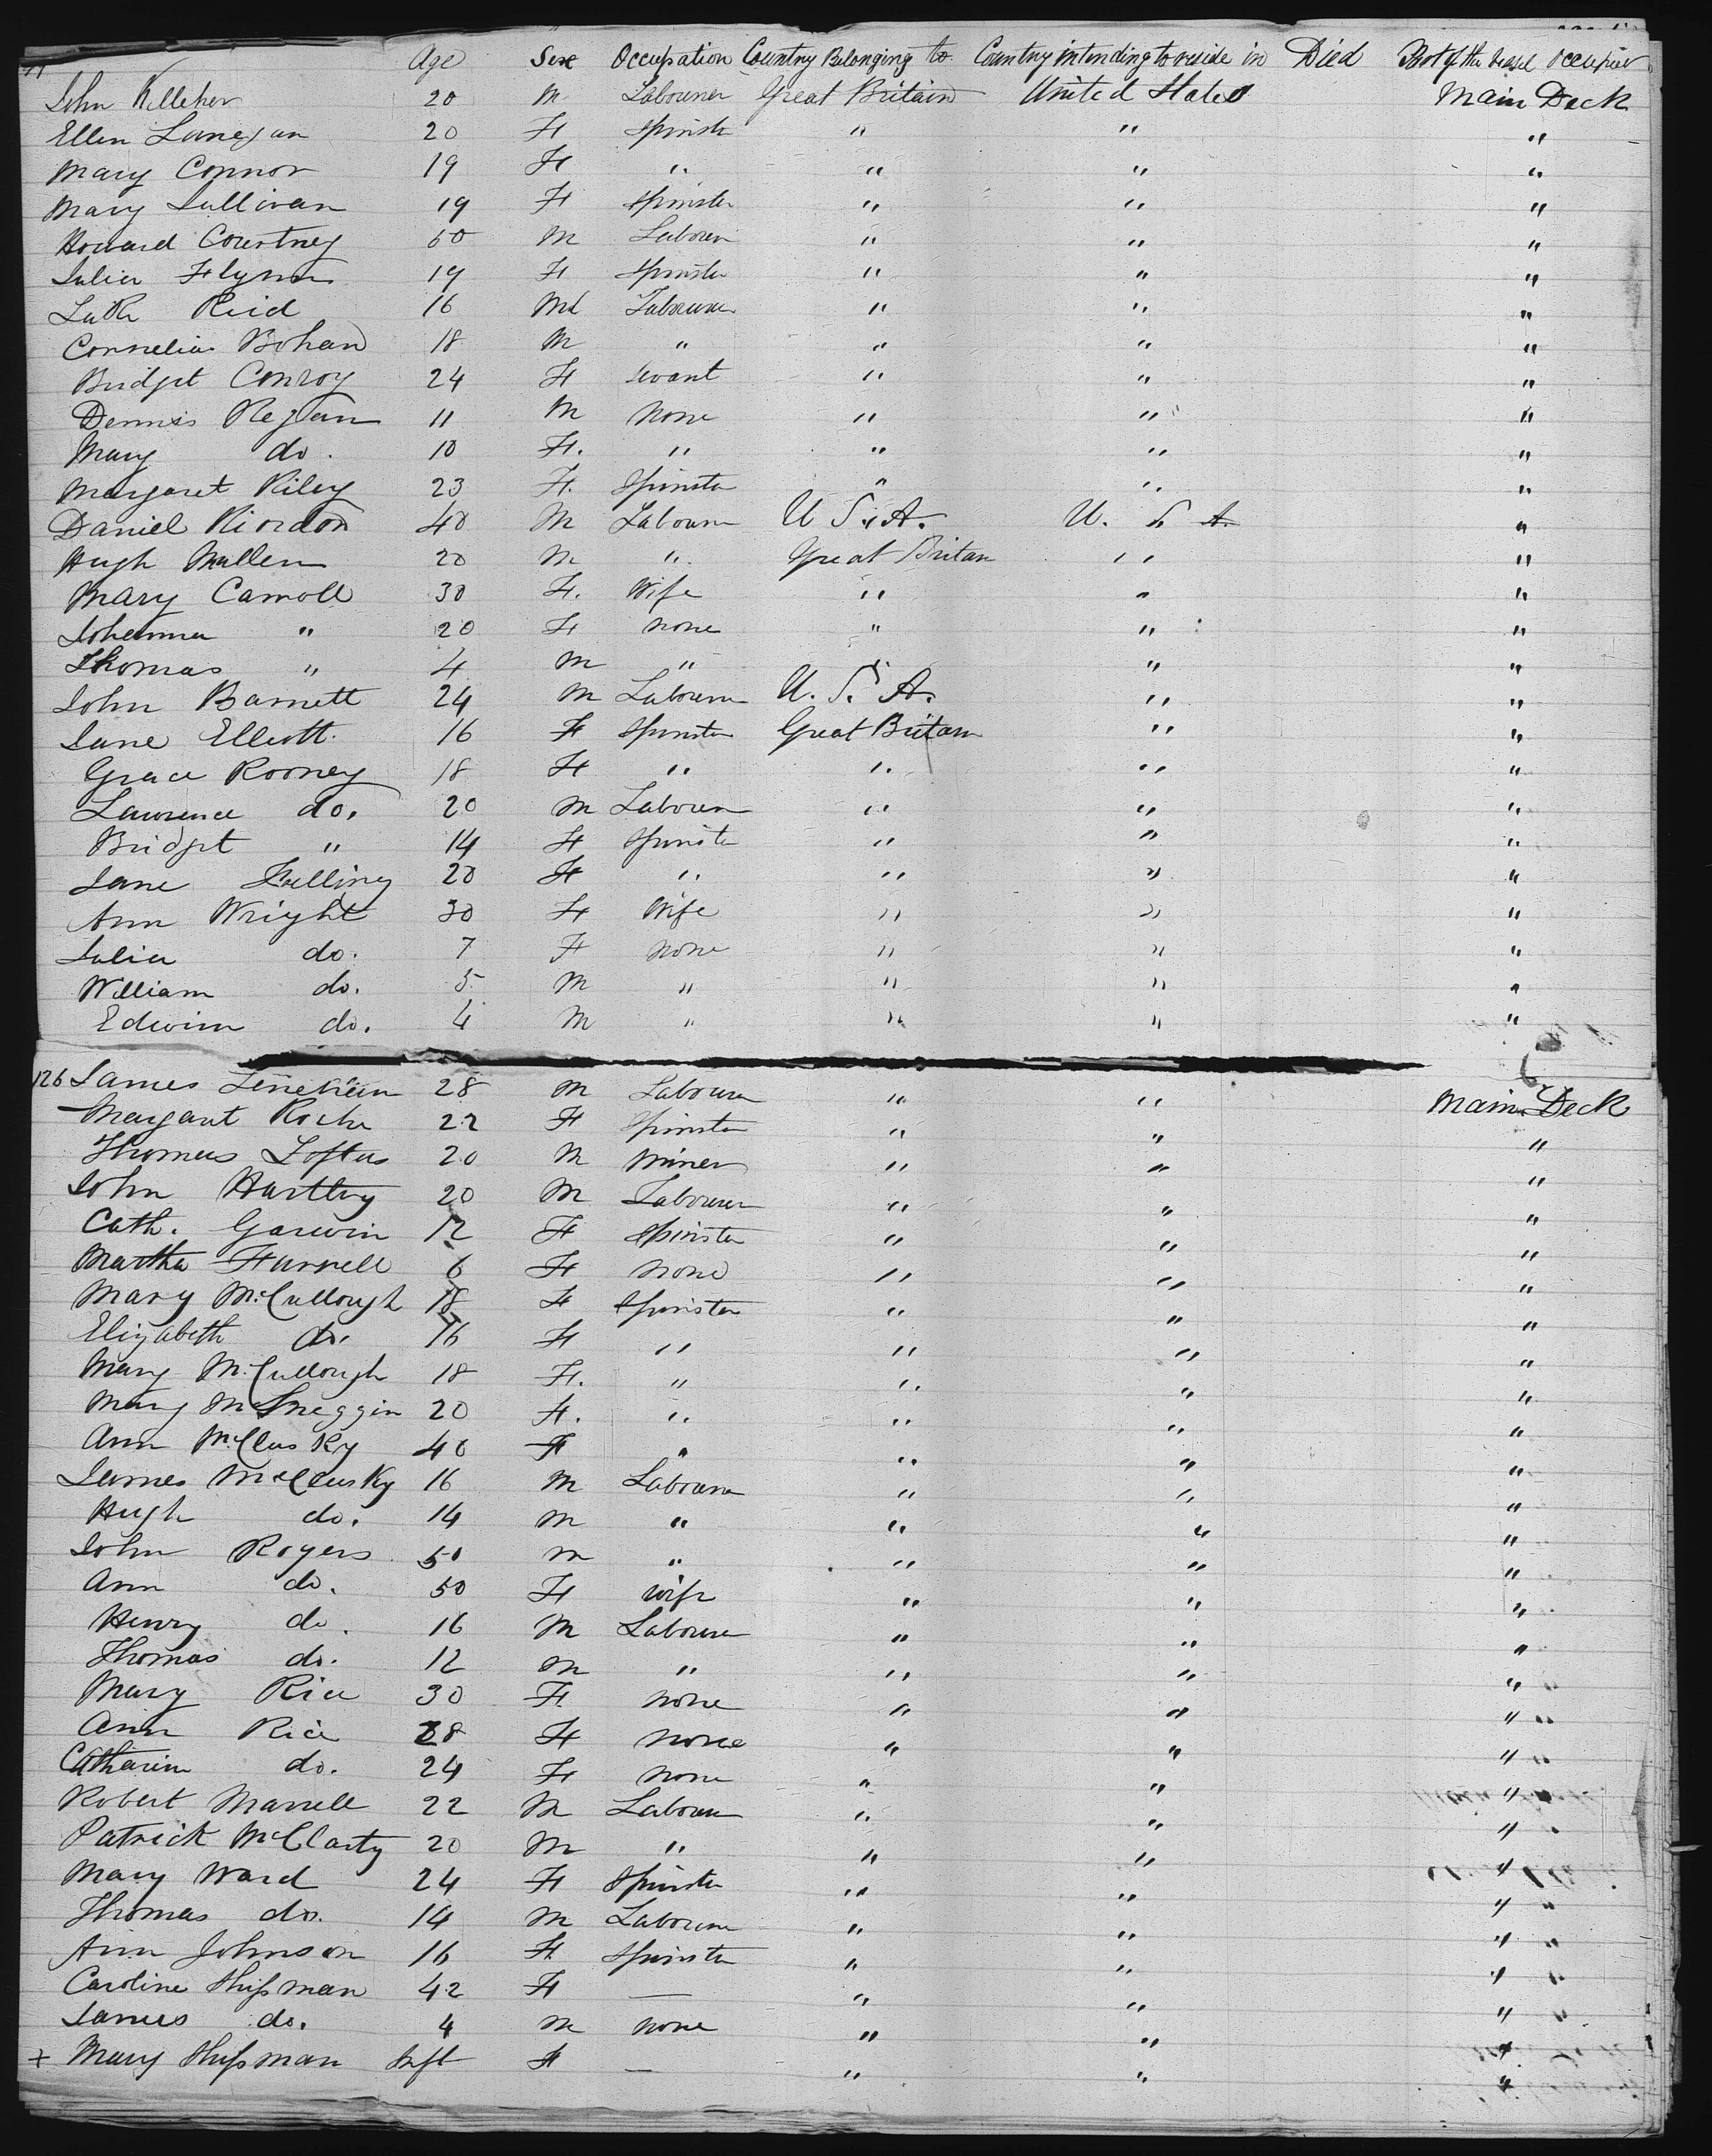 Age Sex Occupation Country Belonging to Country intending to reside in Died Part of the vessel occupied
John Killeher 20 M Labourer Great Britain United States Main Deck
Ellen Lanegan 20 F Spinster " " "
Mary Connor 19 F " " " "
Mary Sullivan 19 F Spinster " " "
Howard Courtney 60 M Labourer " " "
Julia Flynn 19 F Spinster " " "
Luke Reid 16 M Labourer " " "
Cornelius Bohan 18 M " " " "
Bridget Conroy 24 F Servant " " "
Dennis Regan 11 M None " " "
Mary do. 10 F. " " " "
Margaret Riley 23 F. Spinster " " "
Daniel Riordon 40 M Labourer U.S.A. U.S.A. "
Hugh Mullen 20 M " Great Britain " "
Mary Carroll 30 F. Wife " " "
Johanna " 20 F none " " "
Thomas " 4 M " " " "
John Barnett 24 M Labourer U.S.A. " "
Jane Elliott. 16 F Spinster Great Britain " "
Grace Rooney 18 F " " " "
Lawrence do. 20 M Labourer " " "
Bridget " 14 F Spinster " " "
Jane 20 F " " " "
Ann Wright 30 F Wife " " "
Julia do. 7 F none " " "
William do. 5 M " " " "
Edwin do. 4 M " " " "
126 James 28 M Labourer " " Main Deck
Margaret Roche 22 F Spinster " " "
Thomas Loftus 20 M Miner " " "
John Hartley 20 M Labourer " " "
Cath. Garwin 12 F Spinster " " "
Martha Furnell 6 F none " " "
Mary McCullough 18 F Spinster " " "
Elizabeth do. 16 F " " " "
Mary McCullough 18 F. " " " "
Mary McSneggin 20 F. " " " "
Ann McClusky 40 F " " " "
James McClusky 16 M Labourer " " "
Hugh do. 14 M " " " "
John Rogers 50 M " " " "
Ann do. 50 F wife " " "
Henry do. 16 M Labourer " " "
Thomas do. 12 M " " " "
Mary Rice 30 F none " " "
Ann Rice 28 F none " " "
Catharine do. 24 F none " " "
Robert Marrell 22 M Labourer " " "
Patrick McClarty 20 M " " " "
Mary Ward 24 F Spinster " " "
Thomas do. 14 M Labourer " " "
Ann Johnson 16 F Spinster " " "
Caroline Shipman 42 F — " " "
James do. 4 M none " " "
+ Mary Shipman Inft F — " " "